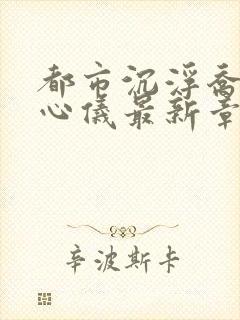 都市沉浮乔
心儀最新章
辛波斯卡